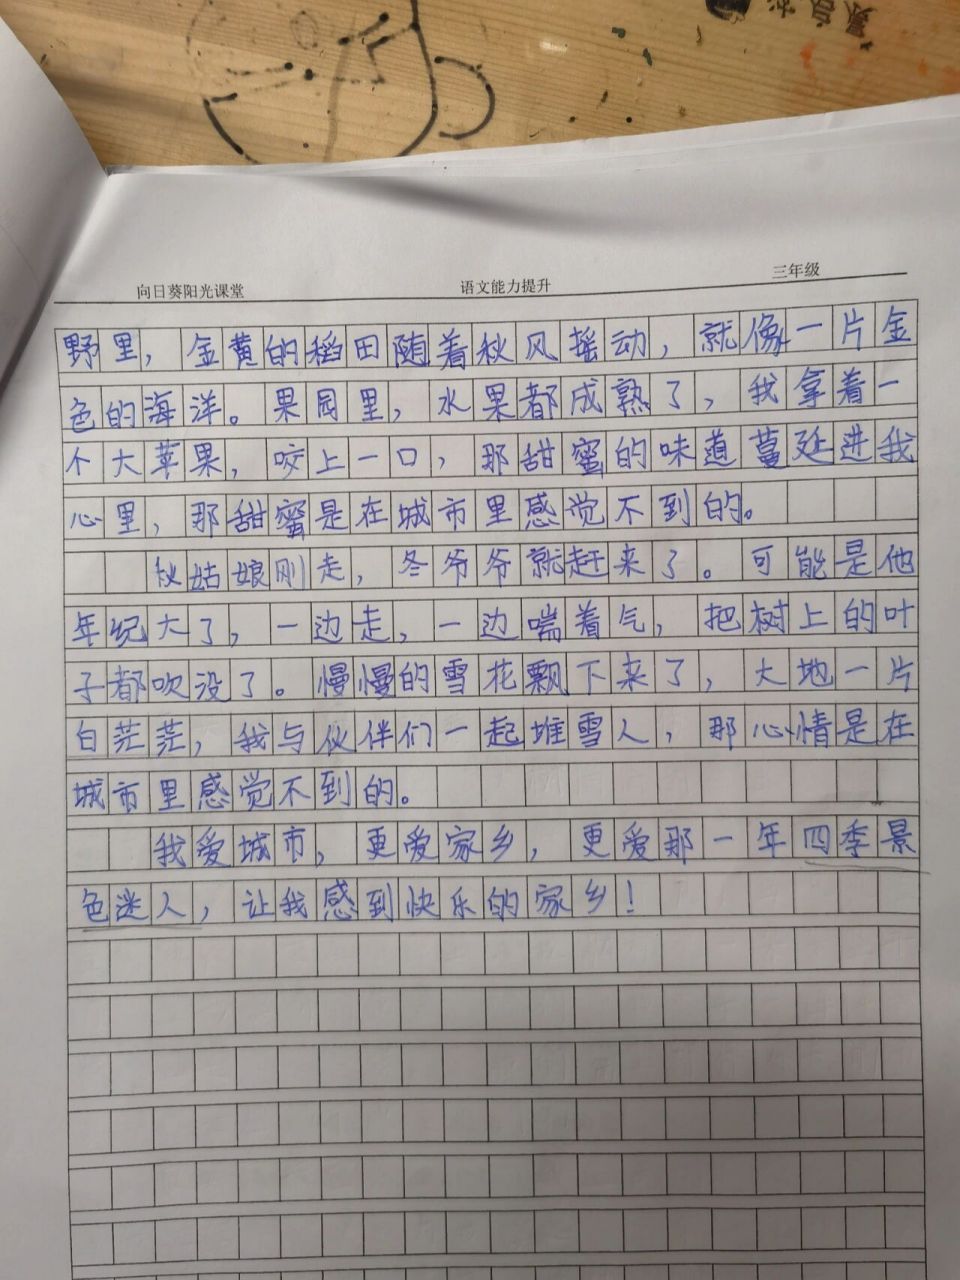 向日葵阳光课堂 语文能力提升 三年级
野里，金黄的稻田随着秋风摇动，就像一片金
色的海洋。果园里，水果都成熟了，我拿着一
个大苹果，咬上一口，那甜蜜的味道蔓延进我
心里，那甜蜜是在城市里感觉不到的。
秋姑娘刚走，冬爷爷就赶来了。可能是他
年纪大了，一边走，一边喘着气，把树上的叶
子都吹没了。慢慢的雪花飘下来了，大地一片
白茫茫，我与伙伴们一起堆雪人，那心情是在
城市里感觉不到的。
我爱城市，更爱家乡，更爱那一年四季景
色迷人，让我感到快乐的家乡！